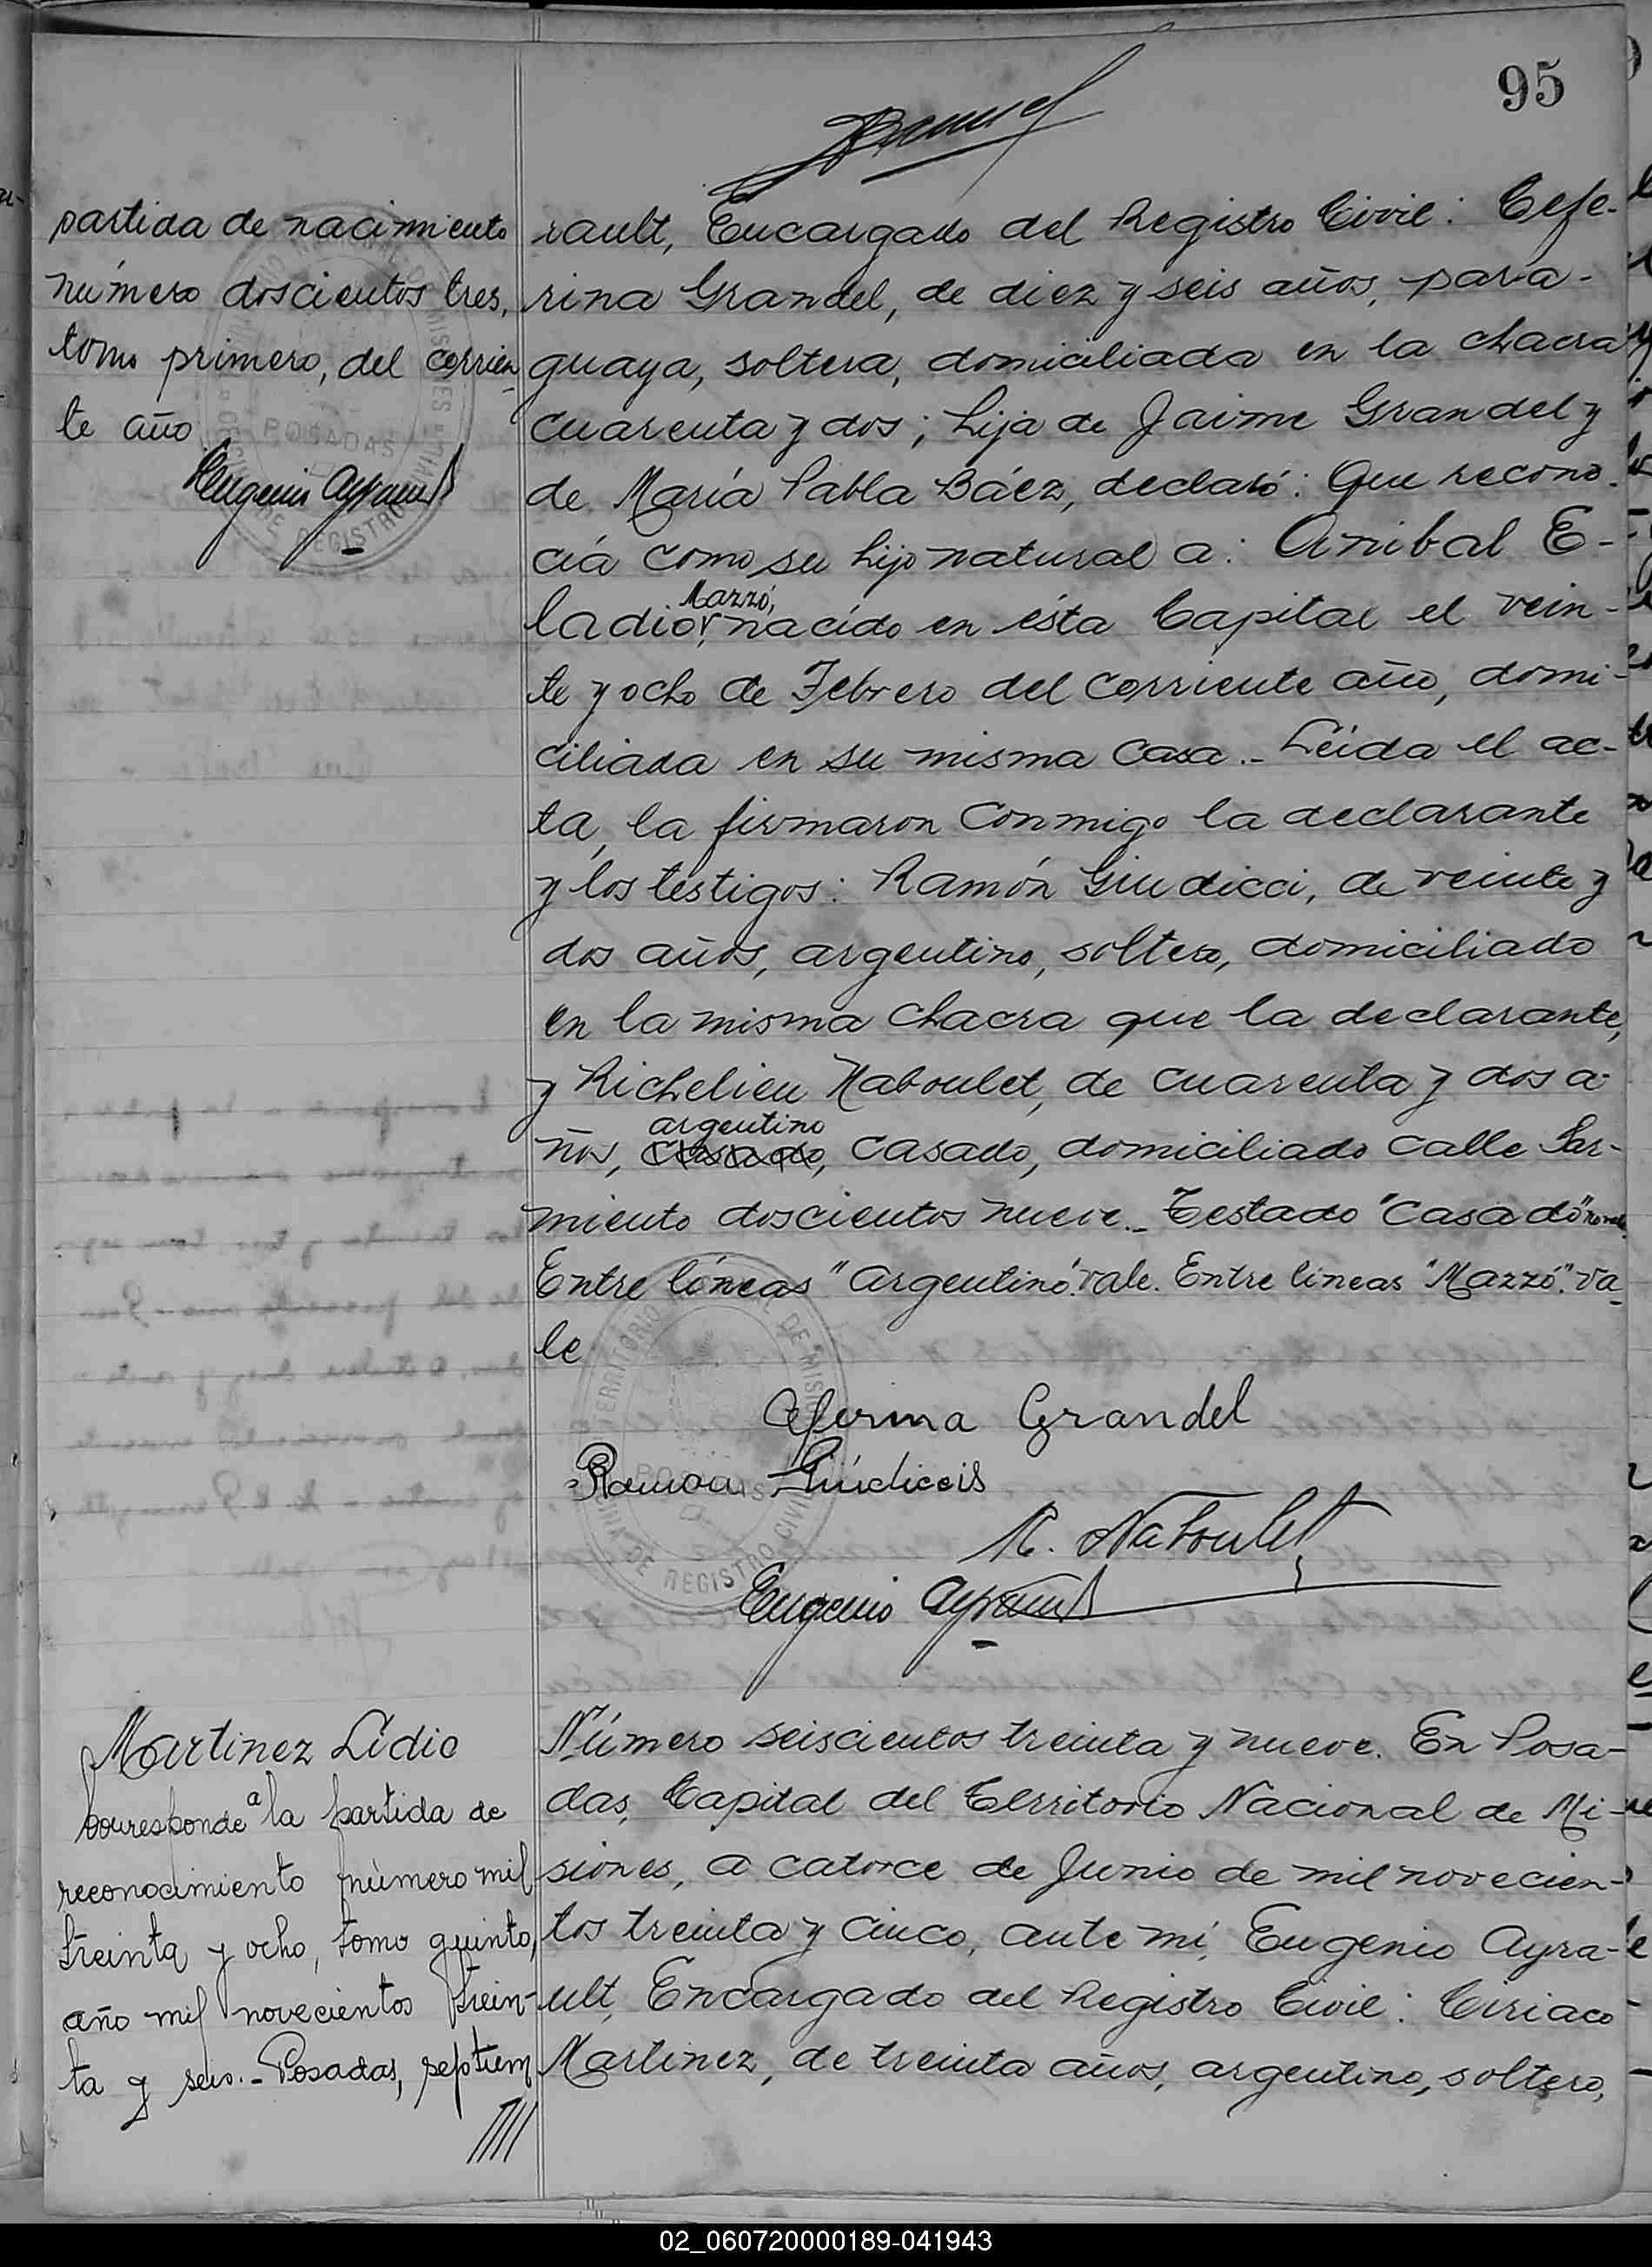 95
partida de nacimiento
número doscientos tres,
tomo primero, del corrien
te año
Eugenio Ayrault
rault, Encargado del Registro Civil: Cefe-
rina Grandel, de diez y seis años, para-
guaya, soltera, domiciliada en la chacra
cuarenta y dos; hija de Jaime Grandel y
de María Pabla Báez, declaró: Que recono-
cía como su hijo natural a: Anibal E-
Mazzó,
ladio, nacido en ésta Capital el vein-
te y ocho de Febrero del corriente año, domi-
ciliada en su misma casa.- Léida el ac-
ta, la firmaron conmigo la declarante
y los testigos: Ramón Giudicci, de veinte y
dos años, argentino, soltero, domiciliado
en la misma chacra que la declarante,
y Richelieu Naboulet, de cuarenta y dos a-
argentino
ños, casado, casado, domiciliado calle Sar-
miento doscientos nueve.- Testado "casado" no vale.
Entre líneas "argentino" vale. Entre líneas "Mazzó". va
le
Ceferina Grandel
Ramon Giudiceis
R. Naboulet
Eugenio Ayrault
TERRITORIO DE MISIONES
POSADAS
OFICINA DE REGISTRO CIVIL
Martinez Lidio
Corresponde a la partida de
reconocimiento número mil
treinta y ocho, tomo quinto,
año mil novecientos trein-
ta y seis.- Posadas, septiem
Número seiscientos treinta y nueve. En Posa-
das, Capital del Territorio Nacional de Mi-
siones, a catorce de Junio de mil novecien-
tos treinta y cinco, ante mí, Eugenio Ayra-
ult, Encargado del Registro Civil: Ciriaco
Martinez, de treinta años, argentino, soltero,
02_060720000189-041943